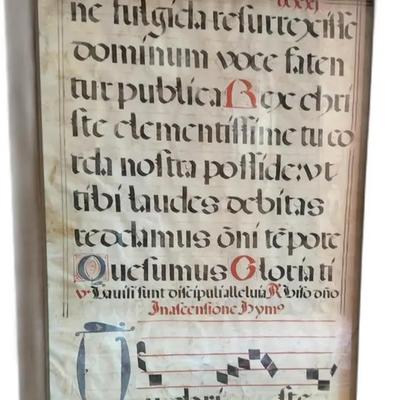 lxxxj
ne fulgida resurrexisse
dominum voce faten
tur publica Rex chri
ste clementissime tu co
rda nostra posside: vt
tibi laudes debitas
reddamus oñi tẽpore
Quesumus Gloria ti
℣ Gauisi sunt discipuli alleluia ℟ Viso dño
In ascensione hymꝰ